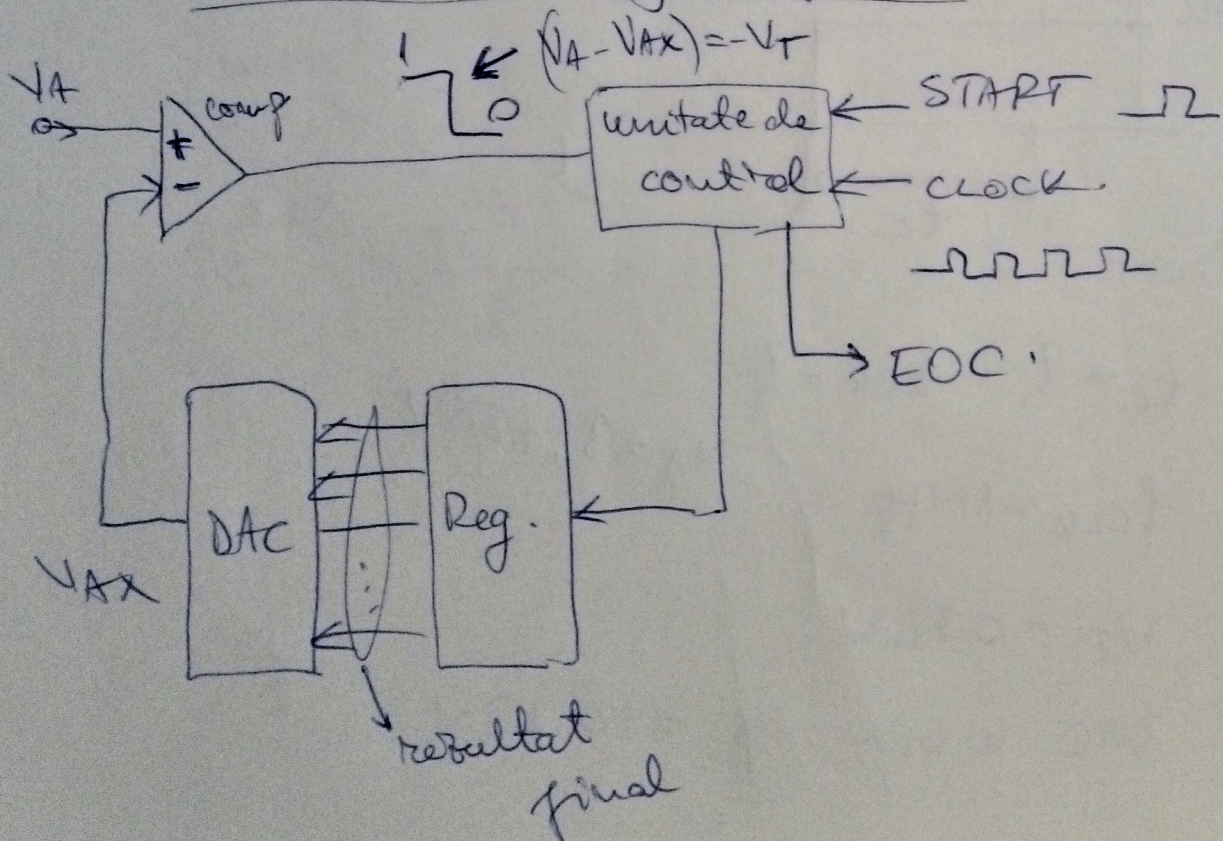 1
(VA - VAX) = -VT
0
VA
comp
+
-
unitate de
control
START
CLOCK.
EOC.
DAC
Reg.
VAX
rezultat
final